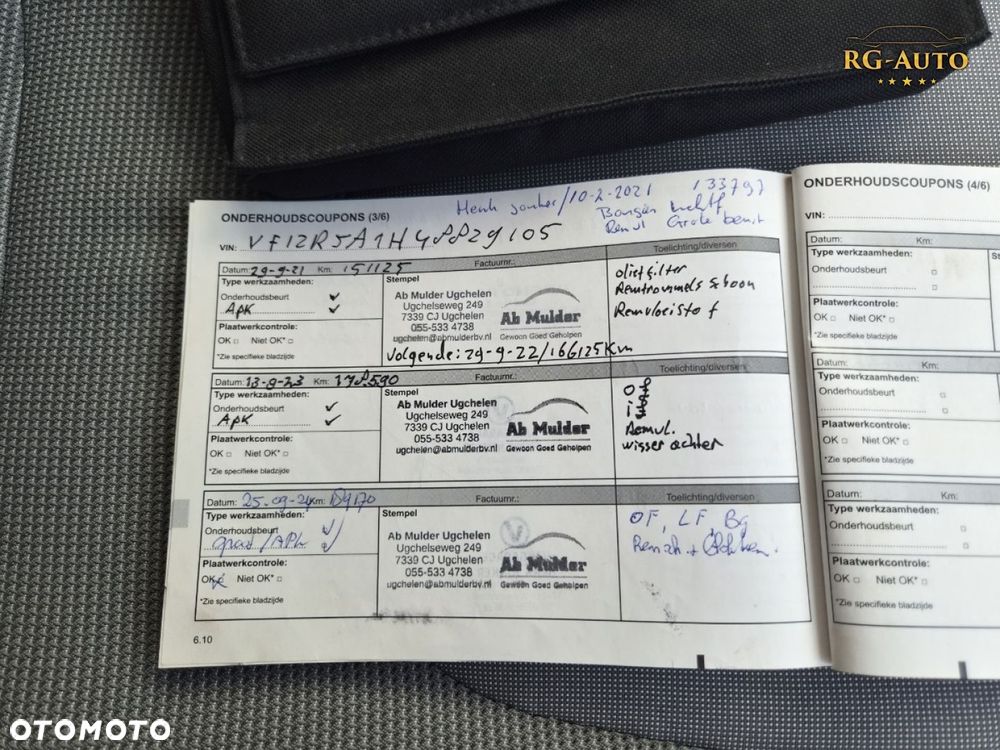 RG-AUTO
ONDERHOUDSCOUPONS (3/6)
/10-2-2021 133797
VIN: VF12R5A1H48829105
Datum: 29-9-21 Km: 151125 Factuurnr.: Toelichting/diversen
Type werkzaamheden: Stempel
Onderhoudsbeurt
APK
Plaatwerkcontrole:
OK Niet OK*
*Zie specifieke bladzijde
Ab Mulder Ugchelen
Ugchelseweg 249
7339 CJ Ugchelen
055-533 4738
ugchelen@abmulderbv.nl
Ab Mulder
Gewoon Goed Geholpen
Volgende: 29-9-22/166125Km
oliefilter
Remtrommels schoon
Remvloeistof
Datum: 13-9-23 Km: 178590 Factuurnr.: Toelichting/diversen
Type werkzaamheden: Stempel
Onderhoudsbeurt
APK
Plaatwerkcontrole:
OK Niet OK*
*Zie specifieke bladzijde
Ab Mulder Ugchelen
Ugchelseweg 249
7339 CJ Ugchelen
055-533 4738
ugchelen@abmulderbv.nl
Ab Mulder
Gewoon Goed Geholpen
Remvl.
wisser achter
Datum: 25-09-24 Km: Factuurnr.: Toelichting/diversen
Type werkzaamheden: Stempel
Onderhoudsbeurt
/APK
Plaatwerkcontrole:
OK Niet OK*
*Zie specifieke bladzijde
Ab Mulder Ugchelen
Ugchelseweg 249
7339 CJ Ugchelen
055-533 4738
ugchelen@abmulderbv.nl
Ab Mulder
Gewoon Goed Geholpen
OF, LF,
6.10
ONDERHOUDSCOUPONS (4/6)
VIN:
Datum: Km:
Type werkzaamheden:
Onderhoudsbeurt
Plaatwerkcontrole:
OK Niet OK*
*Zie specifieke bladzijde
Datum: Km:
Type werkzaamheden:
Onderhoudsbeurt
Plaatwerkcontrole:
OK Niet OK*
*Zie specifieke bladzijde
Datum: Km:
Type werkzaamheden:
Onderhoudsbeurt
Plaatwerkcontrole:
OK Niet OK*
*Zie specifieke bladzijde
OTOMOTO